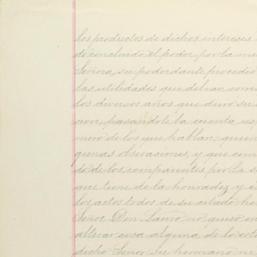 los productos de dichos intereses
do concluido el poder, por la mu
Señora, su poderdante procedio
las utilidades que debian corres
los diversos años que duró su
cion, pasandole la cuenta, 
mero de los que hablan, quien
gunas observaciones, y que con
do de los comparentes por la
que tiene de la honradez y
los actos todos de su citado her
Señor Don no quiso
alterar cosa alguna de lo
dicho Señor su hermano